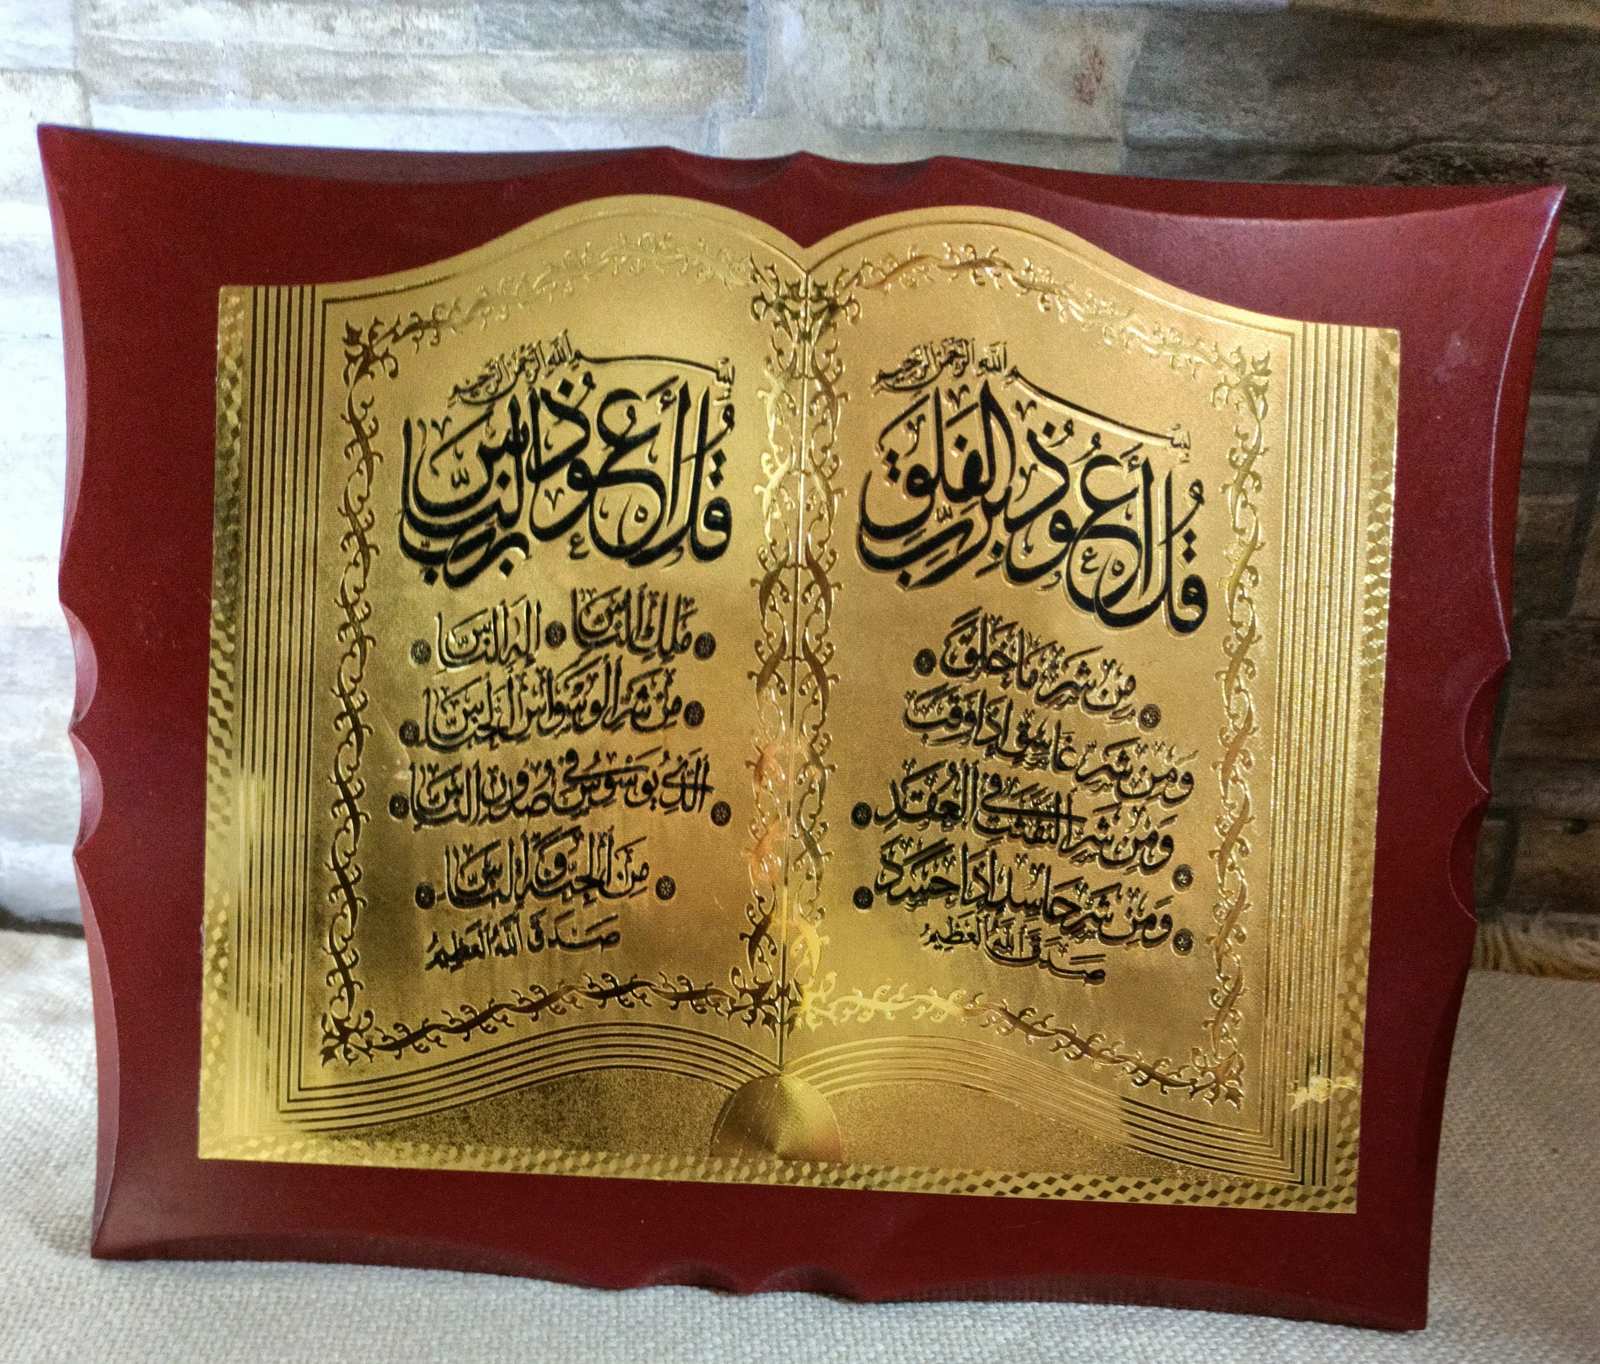 بِسْمِ اللهِ الرَّحْمٰنِ الرَّحِيمِ
قُلْ أَعُوذُ بِرَبِّ الْفَلَقِ
مِنْ شَرِّ مَا خَلَقَ
وَمِنْ شَرِّ غَاسِقٍ إِذَا وَقَبَ
وَمِنْ شَرِّ النَّفّٰثٰتِ فِي الْعُقَدِ
وَمِنْ شَرِّ حَاسِدٍ إِذَا حَسَدَ
صَدَقَ اللهُ الْعَظِيمُ
بِسْمِ اللهِ الرَّحْمٰنِ الرَّحِيمِ
قُلْ أَعُوذُ بِرَبِّ النَّاسِ
مَلِكِ النَّاسِ إِلٰهِ النَّاسِ
مِنْ شَرِّ الْوَسْوَاسِ الْخَنَّاسِ
الَّذِي يُوَسْوِسُ فِي صُدُورِ النَّاسِ
مِنَ الْجِنَّةِ وَالنَّاسِ
صَدَقَ اللهُ الْعَظِيمُ